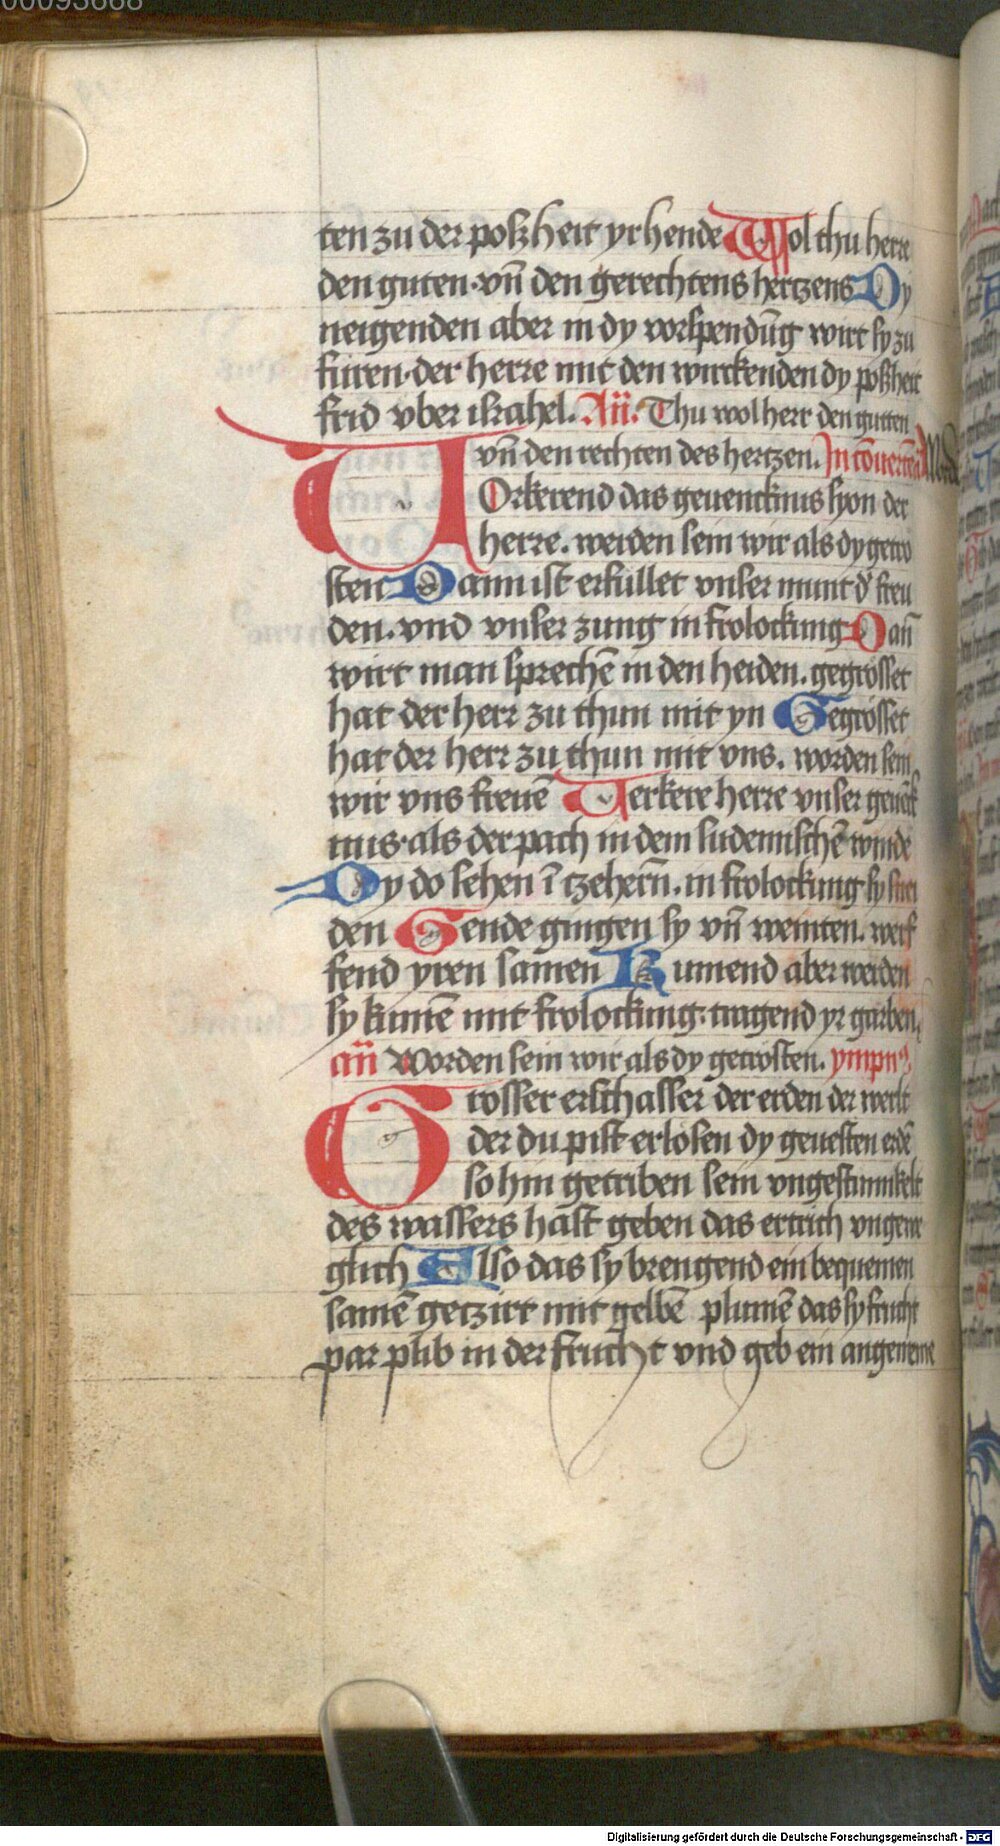 00093668
ten zu der poßheit yr hende Wol thu herre
den guten · vn̄ den gerechtens hertzens Dy
neigenden aber in dy vorspendūg wirt sy zu
furen · der herre mit den wurckenden dy poßheit
frid vber israhel. An̄. Thu wol herr den gutten
vn̄ den rechten des hertzen. In
VOrkerend das gevencknus syon der
herre. werden sein wir als dy getro
sten Dann ist erfullet vnser munt d' freu
den. vnd vnser zung in frolockung Dan̄
wirt man sprechē in den heiden. gegrosset
hat der herr zu thun mit yn Gegrosset
hat der herr zu thun mit vns. worden sein
wir vns freuē Verkere herre vnser
nus · als der pach in dem sudennischē winde
Dy do sehen ī tzehern̄. in frolockung sy snei
den Gende gingen sy vn̄ weinten. werf
fend yren samen Kumend aber werden
sy kumē mit frolockung · tragend yr garben.
an̄ Worden sein wir als dy getrosten. ympn9
Grosser erschaffer der erden der werlt
der du pist erlosen dy geuesten erdē
so hin getriben sein
des wassers hast geben das ertrich
glich Also das sy brengend ein bequemen
samē getzirt mit gelbē plumē das sy frucht
par plib in der frucht vnd geb ein angeneme
Digitalisierung gefördert durch die Deutsche Forschungsgemeinschaft - DFG